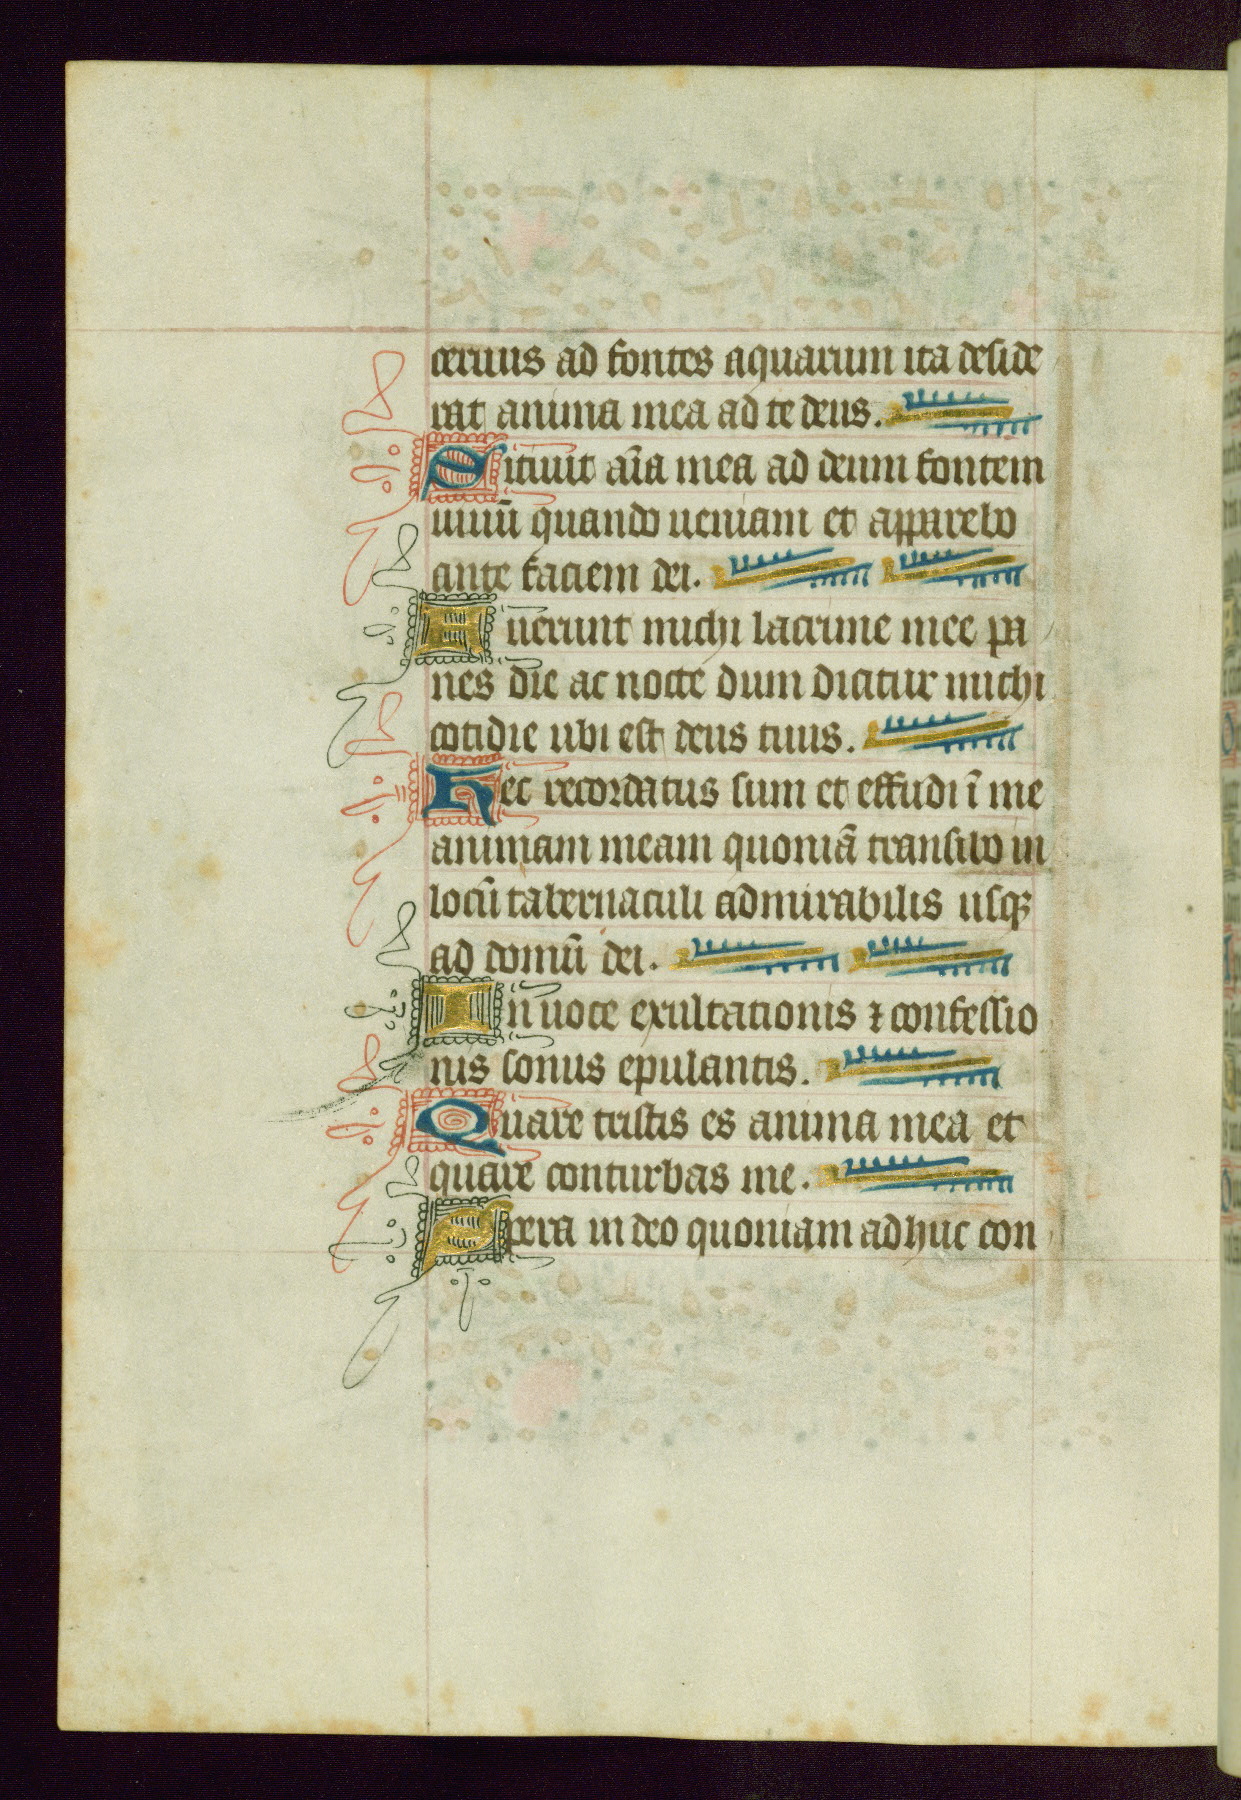 ceruus ad fontes aquarum ita deside
rat anima mea ad te deus.
Sitiuit aīa mea ad deum fontem
uiuū quando ueniam et apparebo
ante faciem dei.
Fuerunt michi lacrime mee pa
nes die ac nocte dum dicitur michi
cotidie ubi est deus tuus.
Hec recordatus sum et effudi ī me
animam meam quoniā transibo in
locū tabernaculi admirabilis usqꝫ
ad domū dei.
In uoce exultationis ⁊ confessio
nis sonus epulantis.
Quare tristis es anima mea et
quare conturbas me.
Spera in deo quoniam adhuc con